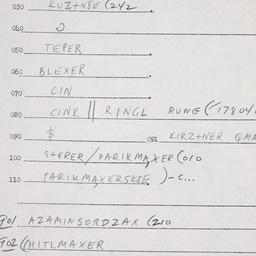 030 KUZ+NSE (242
040
050 TEPER
060 BLEXER
070 CIN
080 CINK || RINGL RUNG (17804
090 $ 091 KIRZ+NER
100 S+EPER/PARIKMAXER (010
110 PARIKMAXERSKE )-C...
901 AZAMINSORDZAX (210
902 (HITLMAXER